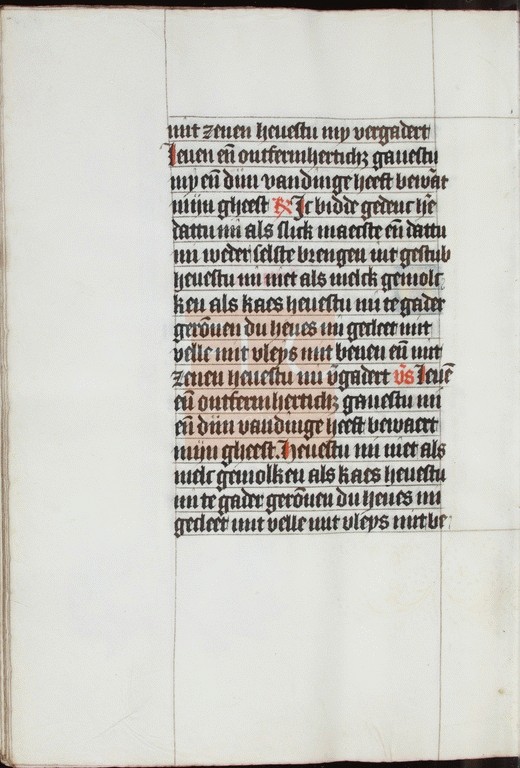 mit zenen heuestu my vergadert
Leuen en̄ ontfermherticħ gauestu
my en̄ dijn vandinge heeft bewār
mijn gheest ℞ Ic bidde gedenc hē
dattu mi als slick maecste en̄ dattu
mi weder selste brengen int gestub
heuestu mi niet als melck gemolc
ken als kaes heuestu mi te gader
gerōnen du heues mi gecleet mit
velle mit vleys mit benen en̄ mit
zenen heuestu mi v̄gadert v̄s Leuē
en̄ ontfermherticħ gauestu mi
en̄ dijn vandinge heeft bewaert
mijn gheest. Heuestu mi niet als
melc gemolken als kaes heuestu
mi te gader gerōnen du heues mi
gecleet mit velle mit vleys mit be